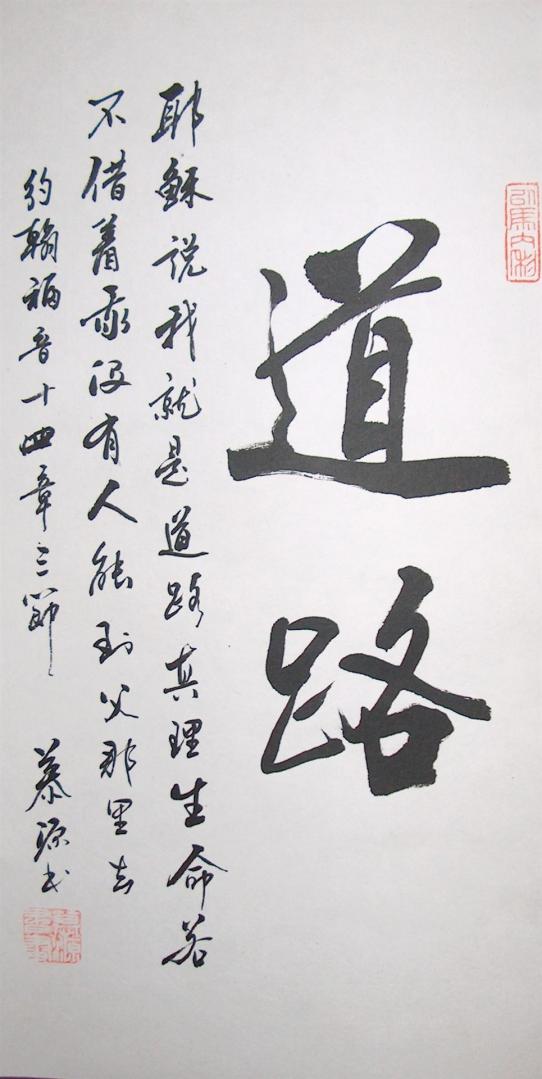 以馬内利
道路
耶稣说我就是道路真理生命若
不借着我没有人能到父那里去
约翰福音十四章六節 慕源书